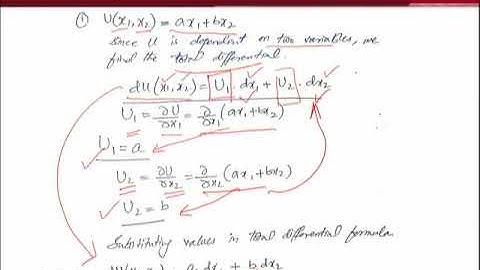 ① U(x₁,x₂) = ax₁+bx₂
Since U is dependent on two variables, we
find the total differential.
dU(x₁,x₂) = U₁ · dx₁ + U₂ · dx₂
U₁ = ∂U/∂x₁ = ∂/∂x₁ (ax₁+bx₂)
U₁ = a
U₂ = ∂U/∂x₂ = ∂/∂x₂ (ax₁+bx₂)
U₂ = b
Substituting values in total differential formula
dU(x₁,x₂) = a dx₁ + b dx₂